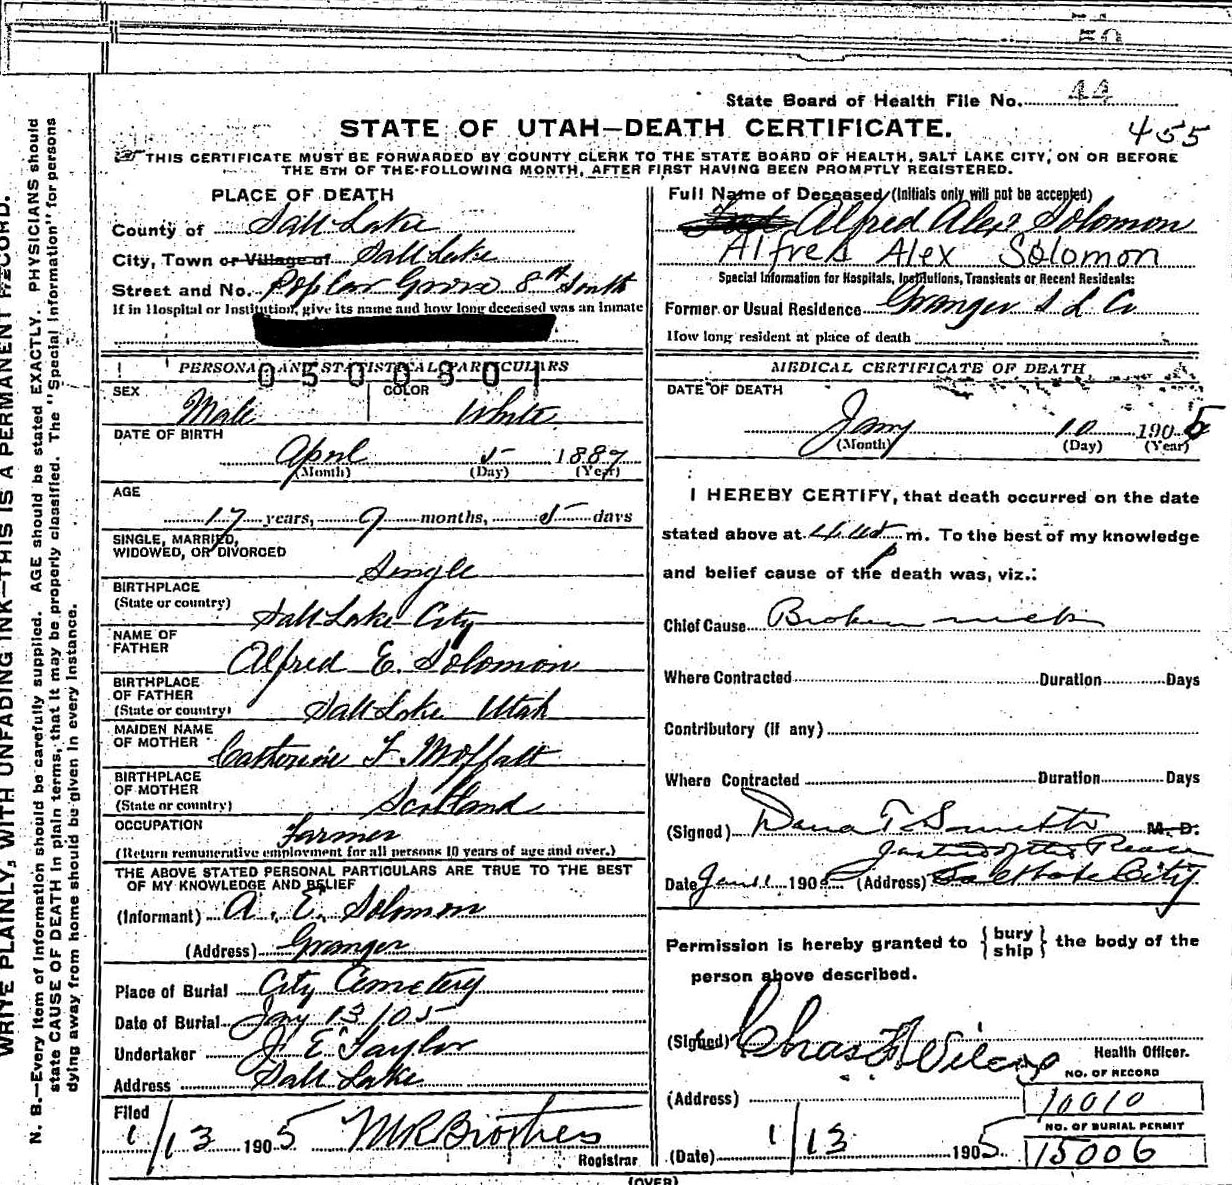 State Board of Health File No. 44
STATE OF UTAH—DEATH CERTIFICATE.
455
THIS CERTIFICATE MUST BE FORWARDED BY COUNTY CLERK TO THE STATE BOARD OF HEALTH, SALT LAKE CITY, ON OR BEFORE
THE 5TH OF THE FOLLOWING MONTH, AFTER FIRST HAVING BEEN PROMPTLY REGISTERED.
PLACE OF DEATH
County of Salt Lake
City, Town or Village of Salt Lake
Street and No. Poplar Grove 8th South
If in Hospital or Institution, give its name and how long deceased was an inmate
PERSONAL AND STATISTICAL PARTICULARS
0500801
SEX Male
COLOR White
DATE OF BIRTH
April 5 1887
(Month) (Day) (Year)
AGE
17 years, 9 months, 5 days
SINGLE, MARRIED,
WIDOWED, OR DIVORCED
Single
BIRTHPLACE
(State or country)
Salt Lake City
NAME OF
FATHER
Alfred E. Solomon
BIRTHPLACE
OF FATHER
(State or country)
Salt Lake Utah
MAIDEN NAME
OF MOTHER
Catherine F. Moffatt
BIRTHPLACE
OF MOTHER
(State or country)
Scotland
OCCUPATION
Farmer
(Return remunerative employment for all persons 10 years of age and over.)
THE ABOVE STATED PERSONAL PARTICULARS ARE TRUE TO THE BEST
OF MY KNOWLEDGE AND BELIEF
(Informant) A. E. Solomon
(Address) Granger
Place of Burial City Cemetery
Date of Burial Jany 13/05
Undertaker J. E. Taylor
Address Salt Lake
Filed
1/13 1905
Registrar
Full Name of Deceased (Initials only will not be accepted)
Alfred Alex Solomon
Alfred Alex Solomon
Special Information for Hospitals, Institutions, Transients or Recent Residents:
Former or Usual Residence Granger S L Co
How long resident at place of death
MEDICAL CERTIFICATE OF DEATH
DATE OF DEATH
Jany 10 1905
(Month) (Day) (Year)
I HEREBY CERTIFY, that death occurred on the date
stated above at p m. To the best of my knowledge
and belief cause of the death was, viz.:
Chief Cause Broken neck
Where Contracted Duration Days
Contributory (if any)
Where Contracted Duration Days
(Signed) Dana T. Smith M. D.
Justice of the Peace
Date Jan 11 1905 (Address) Salt Lake City
Permission is hereby granted to {bury
ship} the body of the
person above described.
(Signed) Chas F Wilcox
Health Officer.
NO. OF RECORD
(Address) 10010
NO. OF BURIAL PERMIT
(Date) 1/13 1905 15006
(OVER)
WRITE PLAINLY, WITH UNFADING INK—THIS IS A PERMANENT RECORD.
N. B.—Every item of information should be carefully supplied. AGE should be stated EXACTLY. PHYSICIANS should
state CAUSE OF DEATH in plain terms, that it may be properly classified. The "Special Information" for persons
dying away from home should be given in every instance.